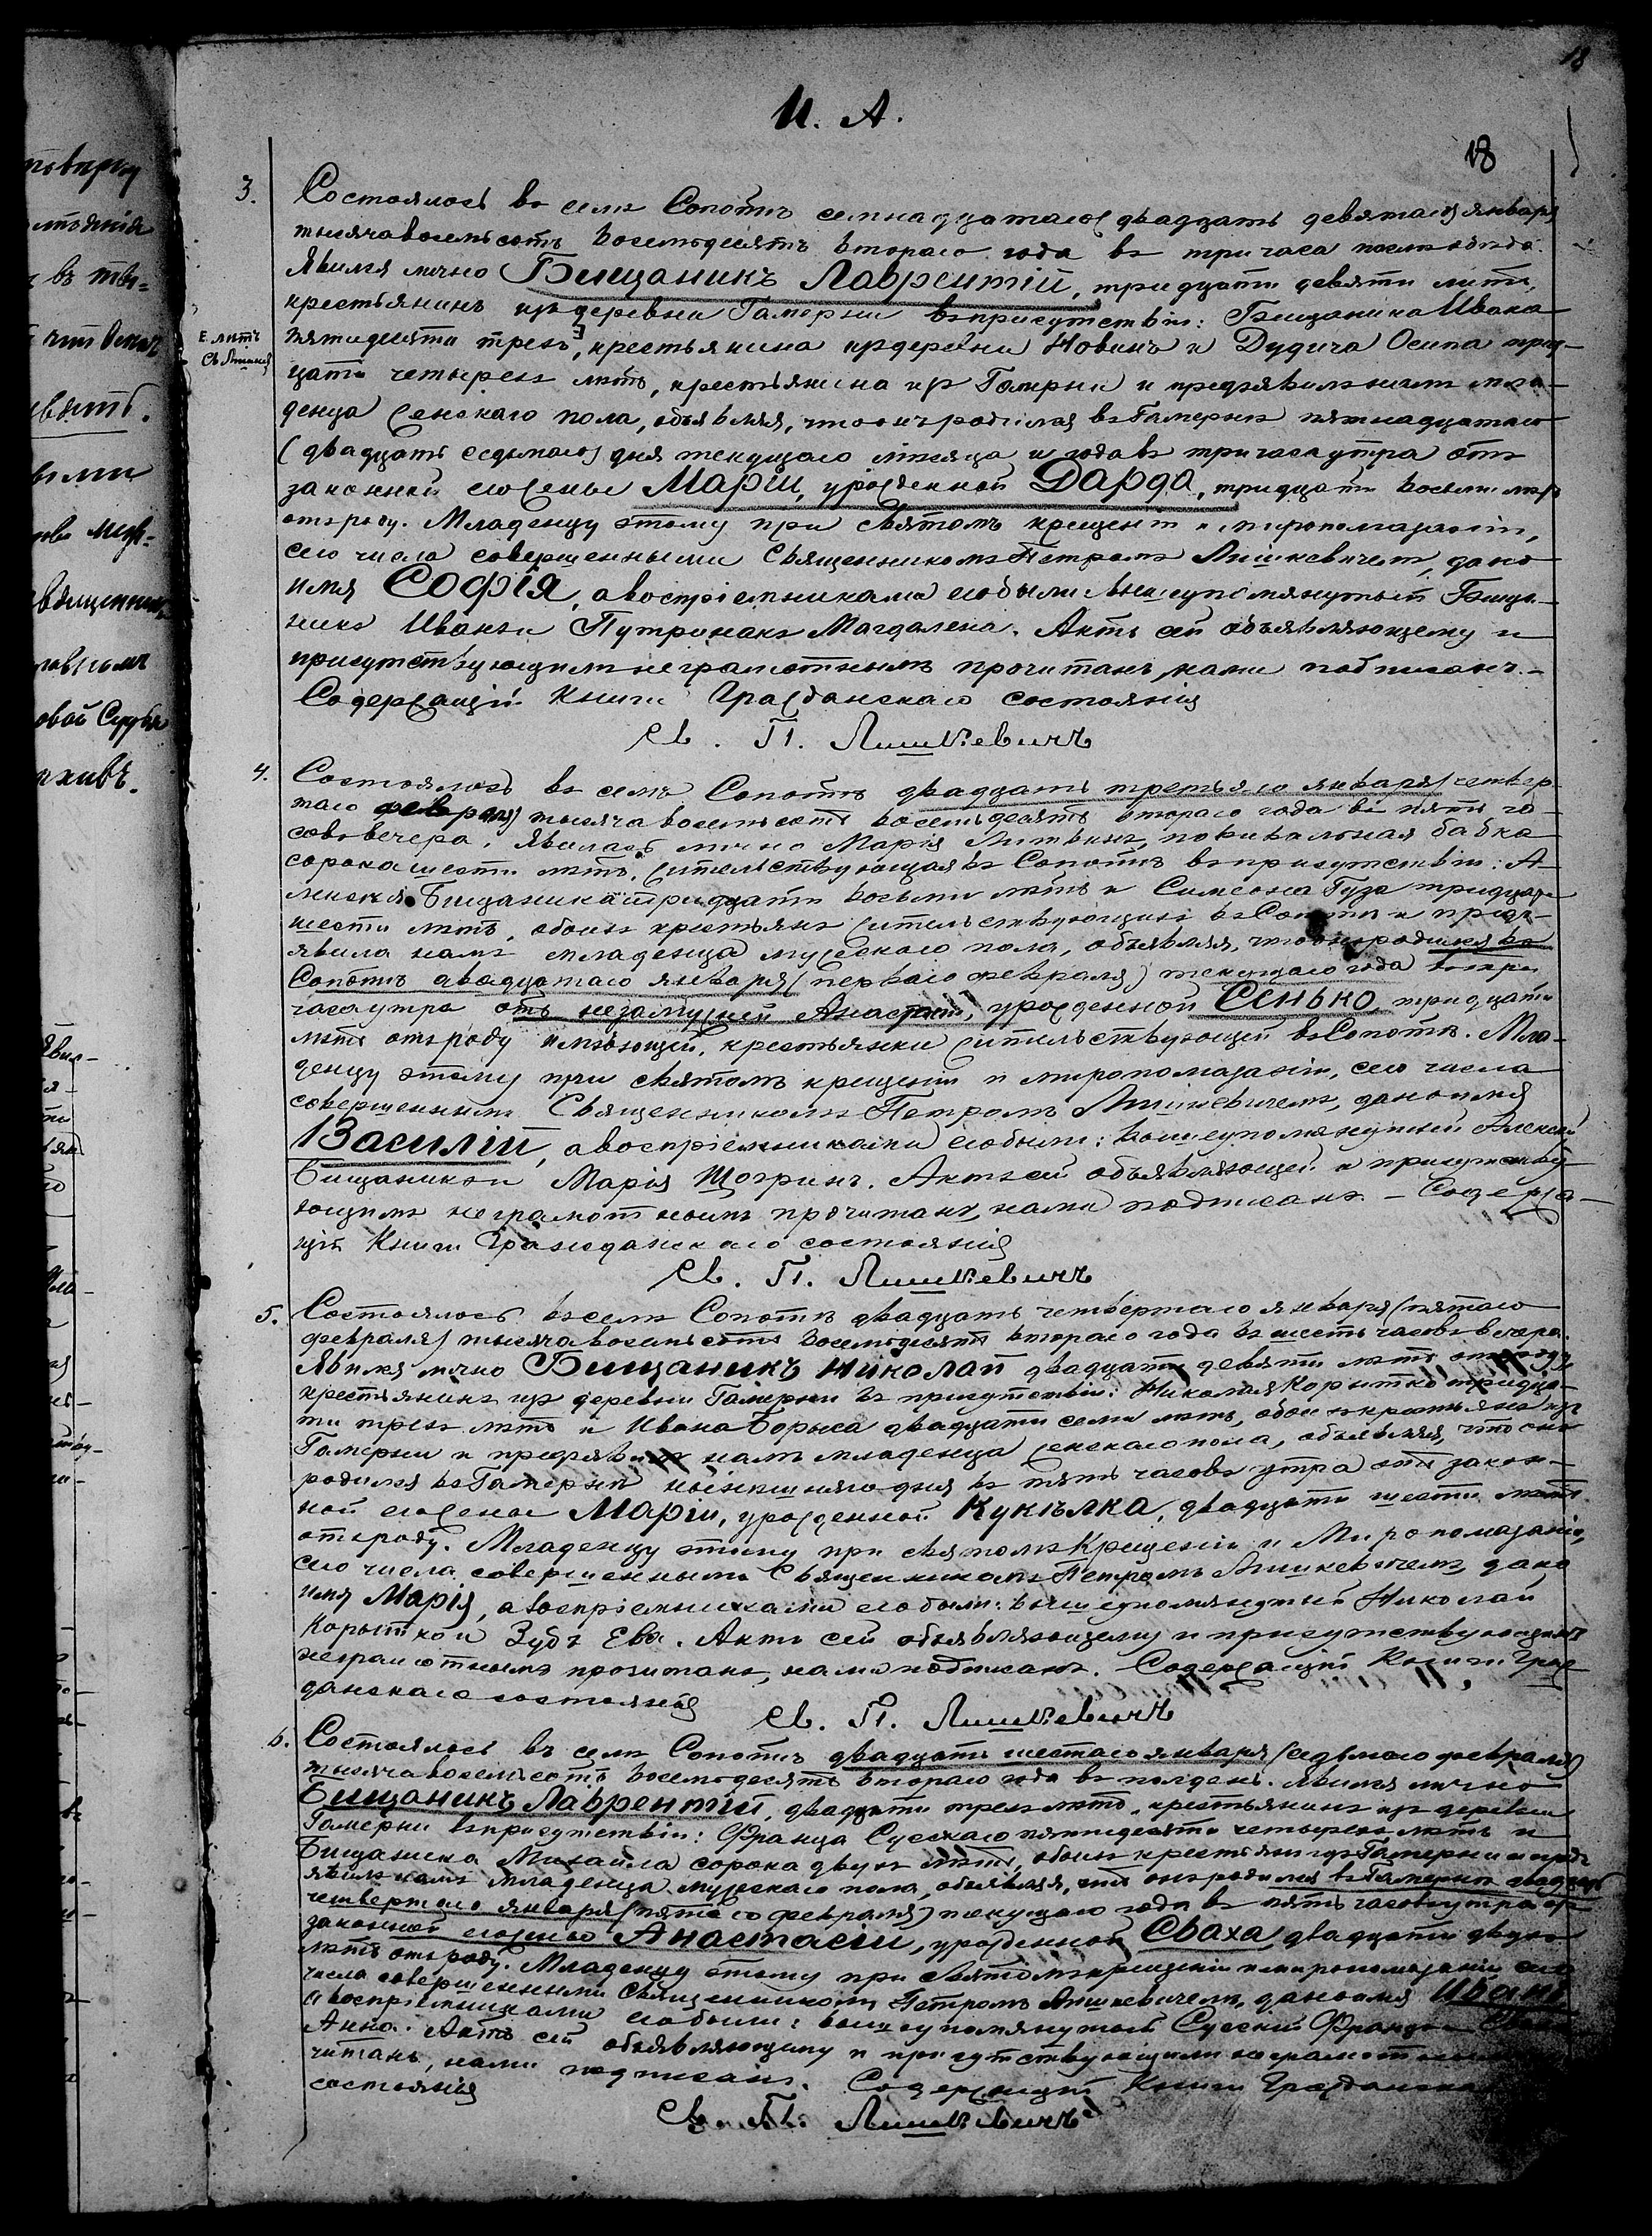 18
И. А.
18
3. Состоялось въ селѣ Сопотѣ семнадцатаго (двадцать девятаго) января
тысяча восемьсотъ восемьдесятъ втораго года въ три часа послѣ обѣда.
Явился лично Бищаникъ Лаврентій, тридцати девяти лѣтъ,
крестьянинъ изъ деревни Гамерни въ присутствіи: Бищаника Ивана
лѣтъ
Св. Лишкев
пятидесяти трехъ, крестьянина изъ деревни Новинъ и Дудича Осипа трид-
цати четырехъ лѣтъ, крестьянина изъ Гамерни и предъявилъ намъ мла-
денца женскаго пола, объявляя, что онъ родился въ Гамернѣ пятнадцатаго
(двадцать седьмаго) дня текущаго мѣсяца и года въ три часа утра отъ
законной его жены Маріи, урожденной Дарда, тридцати восьми лѣтъ
отъ роду. Младенцу этому при святомъ крещеніи и миропомазаніи,
сего числа совершенными Священникомъ Петромъ Лишкевичемъ, дано
имя Софія, а воспріемниками его были: вышеупомянутый Бища-
никъ Иванъ и Путринакъ Магдалена. Актъ сей объявляющему и
присутствующимъ неграмотнымъ прочитанъ, нами подписанъ. -
Содержащій Книги Гражданскаго состоянія
Св. П. Лишкевичъ
4. Состоялось въ селѣ Сопотѣ двадцать третьяго января (четвер-
таго февраля) тысяча восемьсотъ восемьдесятъ втораго года въ пять ча-
совъ вечера. Явилась лично Марія Литвинъ, повивальная бабка
сорока шести лѣтъ, жительствующая въ Сопотѣ въ присутствіи: А-
лексѣя Бищаника тридцати восьми лѣтъ и Симеона Гуза тридцати
шести лѣтъ, обоихъ крестьянъ жительствующихъ въ Сопотѣ и предъ-
явила намъ младенца мужескаго пола, объявляя, что онъ родился въ
Сопотѣ двадцатаго января (перваго февраля) текущаго года въ три
часа утра отъ незамужней Анастасіи, урожденной Сенько, тридцати
лѣтъ отъ роду имѣющей, крестьянки жительствующей въ Сопотѣ. Мла-
денцу этому при святомъ крещеніи и миропомазаніи, сего числа
совершеннымъ Священникомъ Петромъ Лишкевичемъ, дано имя
Василій, а воспріемниками его были: вышеупомянутый Алексѣй
Бищаникъ и Марія Щогринъ. Актъ сей объявляющей и присутству-
ющимъ неграмотнымъ прочитанъ, нами подписанъ. - Содержа-
щій Книги Гражданскаго состоянія
Св. П. Лишкевичъ
5. Состоялось въ селѣ Сопотѣ двадцать четвертаго января (пятаго
февраля) тысяча восемьсотъ восемьдесятъ втораго года въ шесть часовъ вечера.
Явился лично Бищаникъ Николай двадцати девяти лѣтъ отъ роду,
крестьянинъ изъ деревни Гамерни въ присутствіи: Николая Корытко тридца-
ти трехъ лѣтъ и Ивана Борыса двадцати семи лѣтъ, обоихъ крестьянъ изъ
Гамерни и предъявилъ намъ младенца женскаго пола, объявляя, что онъ
родился въ Гамернѣ нынѣшняго дня въ пять часовъ утра отъ закон-
ной его жены Маріи, урожденной Кукелка, двадцати шести лѣтъ
отъ роду. Младенцу этому при святомъ Крещеніи и Миропомазаніи,
сего числа совершенными Священникомъ Петромъ Лишкевичемъ, дано
имя Марія, а воспріемниками его были: вышеупомянутый Николай
Корытко и Зубъ Ева. Актъ сей объявляющему и присутствующимъ
неграмотнымъ прочитанъ, нами подписанъ. Содержащій Книги Граж-
данскаго состоянія
Св. П. Лишкевичъ
6. Состоялось въ селѣ Сопотѣ двадцать шестаго января (седьмаго февраля)
тысяча восемьсотъ восемьдесятъ втораго года въ полдень. Явился лично
Бищаникъ Лаврентій, двадцати трехъ лѣтъ, крестьянинъ изъ деревни
Гамерни въ присутствіи: Франца Сускаго пятидесяти четырехъ лѣтъ и
Бищаника Михаила сорока двухъ лѣтъ, обоихъ крестьянъ изъ Гамерни и предъ-
явилъ намъ младенца мужескаго пола, объявляя, что онъ родился въ Гамернѣ двадцать
четвертаго января (пятаго февраля) текущаго года въ пять часовъ утра отъ
законной его жены Анастасіи, урожденной Сваха, двадцати двухъ
лѣтъ отъ роду. Младенцу этому при святомъ крещеніи и миропомазаніи сего
числа совершенными Священникомъ Петромъ Лишкевичемъ, дано имя Иванъ,
а воспріемниками его были: вышеупомянутый Суский Францъ и
Анна. Актъ сей объявляющему и присутствующимъ неграмотнымъ
читанъ, нами подписанъ. Содержащій Книги Гражданска
состоянія
Св. П. Лишкевичъ